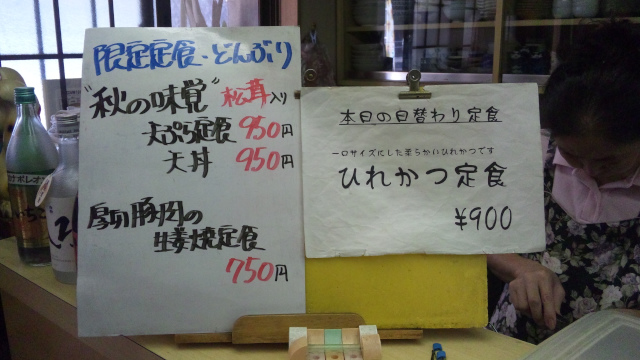 限定定食・どんぶり
"秋の味覚" 松茸入り
天ぷら定食 950円
天丼 950円
厚切豚肉の
生姜焼定食
750円
本日の日替わり定食
一口サイズにした柔らかいひれかつです
ひれかつ定食
¥900